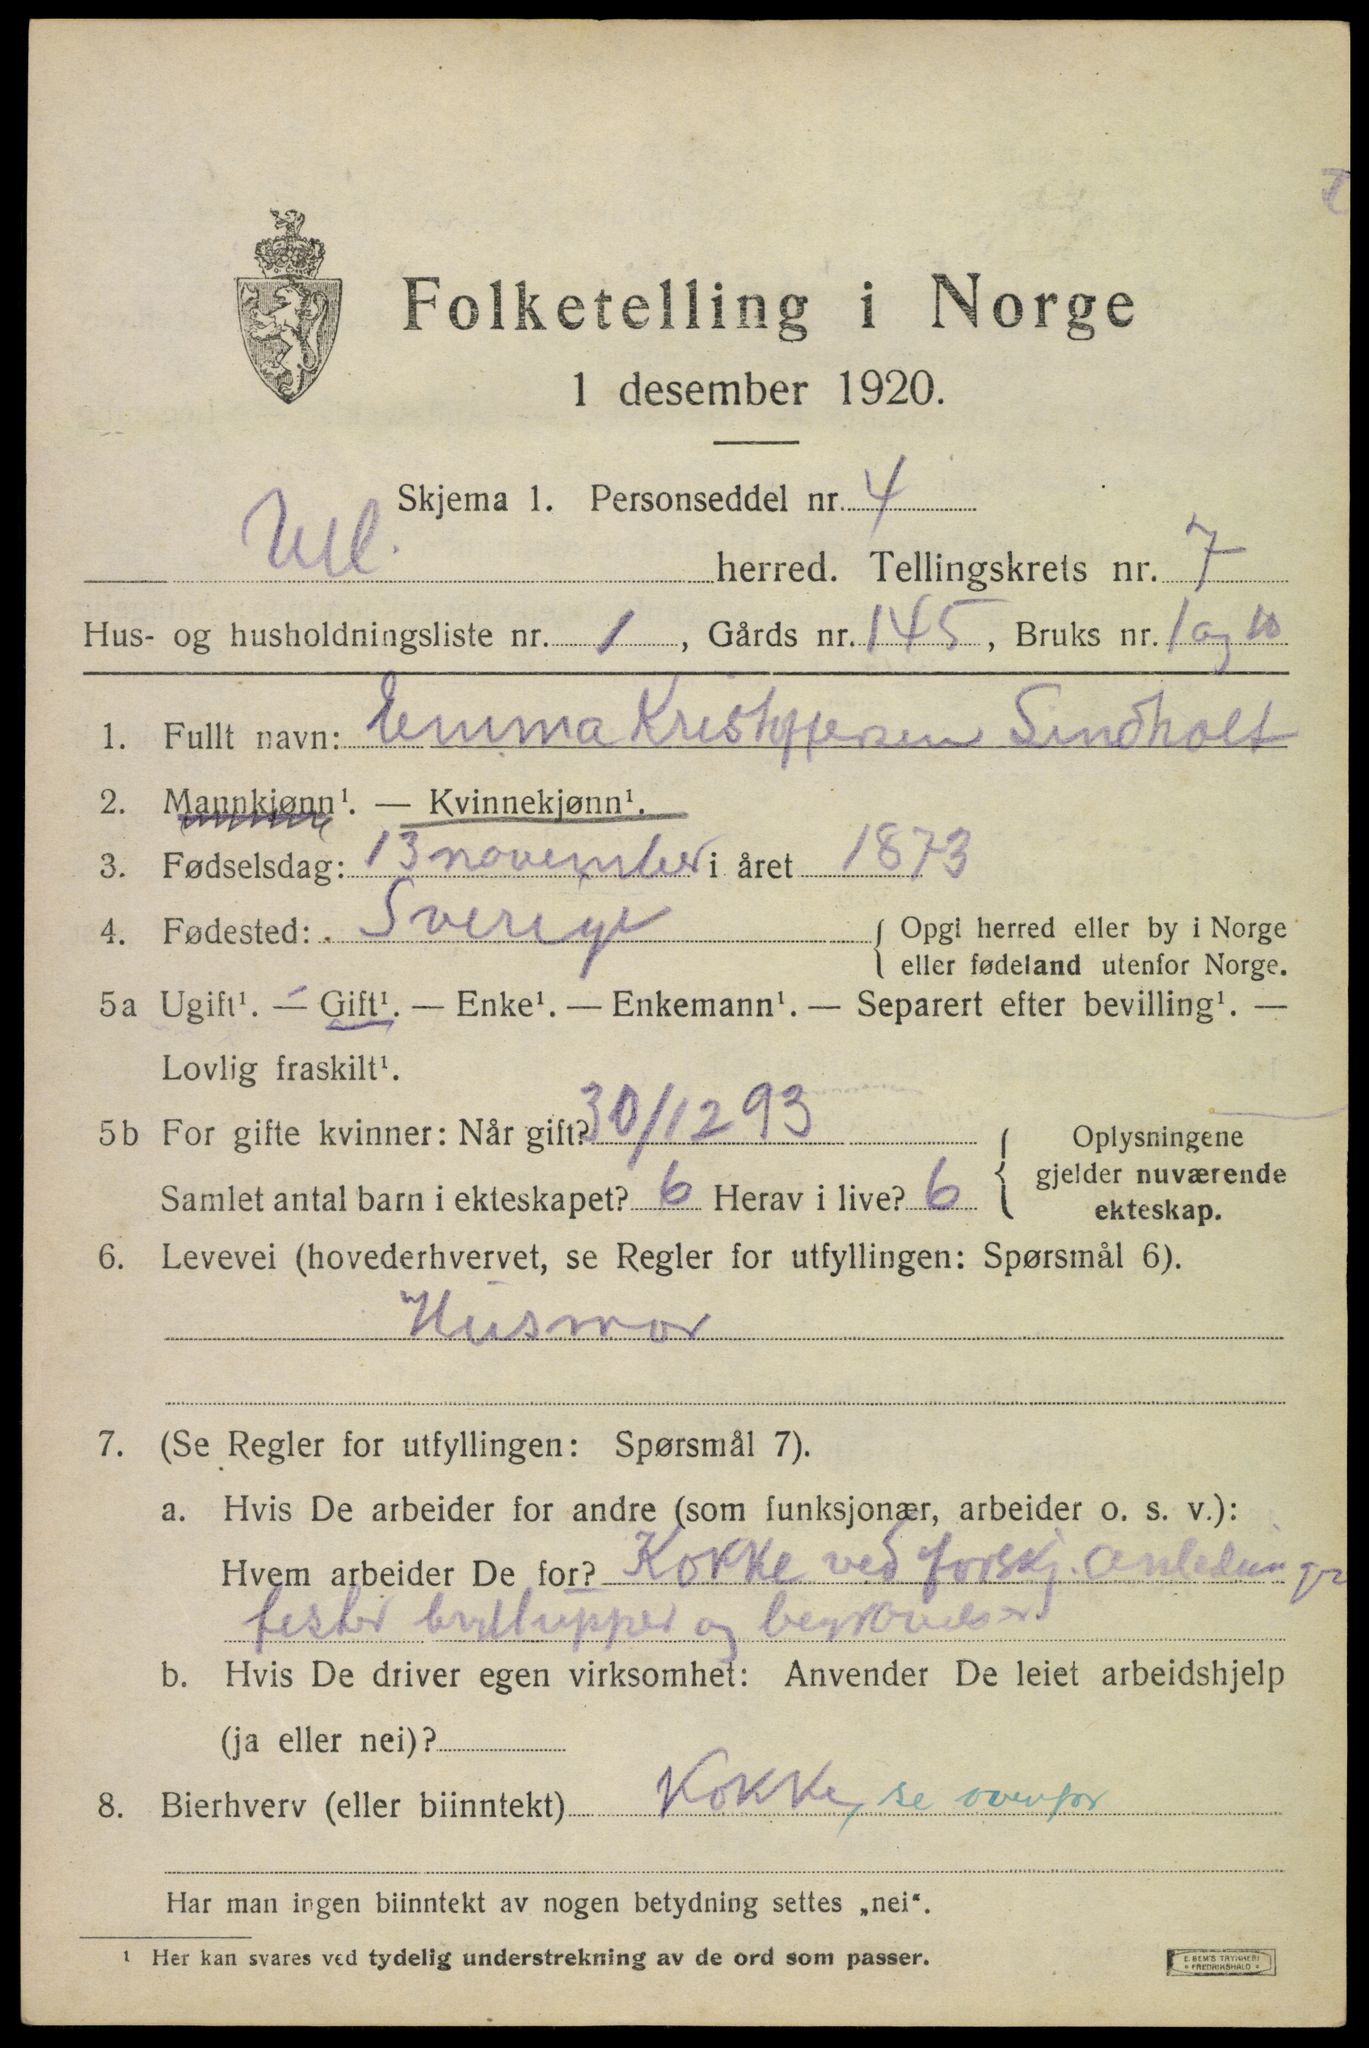 Folketelling i Norge
1 desember 1920.
Skjema 1. Personseddel nr. 4
Ull. herred. Tellingskrets nr. 7
Hus- og husholdningsliste nr. 1, Gårds nr. 145, Bruks nr. 1 og 10
1. Fullt navn: Emma Kristoffersen Sindholt
2. Mannkjønn¹. — Kvinnekjønn¹.
3. Fødselsdag: 13 november i året 1873
4. Fødested: Sverige { Opgi herred eller by i Norge
eller fødeland utenfor Norge.
5a Ugift¹. — Gift¹. — Enke¹. — Enkemann¹. — Separert efter bevilling¹. —
Lovlig fraskilt¹.
5b For gifte kvinner: Når gift? 30/12 93
Samlet antal barn i ekteskapet? 6 Herav i live? 6
{ Oplysningene
gjelder nuværende
ekteskap.
6. Levevei (hovederhvervet, se Regler for utfyllingen: Spørsmål 6).
Husmor
7. (Se Regler for utfyllingen: Spørsmål 7).
a. Hvis De arbeider for andre (som funksjonær, arbeider o. s. v.):
Hvem arbeider De for? Kokke ved forskj. anledninger
fester bryllupper og begravelser
b. Hvis De driver egen virksomhet: Anvender De leiet arbeidshjelp
(ja eller nei)?
8. Bierhverv (eller biinntekt) Kokke, se ovenfor
Har man ingen biinntekt av nogen betydning settes „nei“.
¹ Her kan svares ved tydelig understrekning av de ord som passer.
E. SEM'S TRYKKERI
FREDRIKSHALD